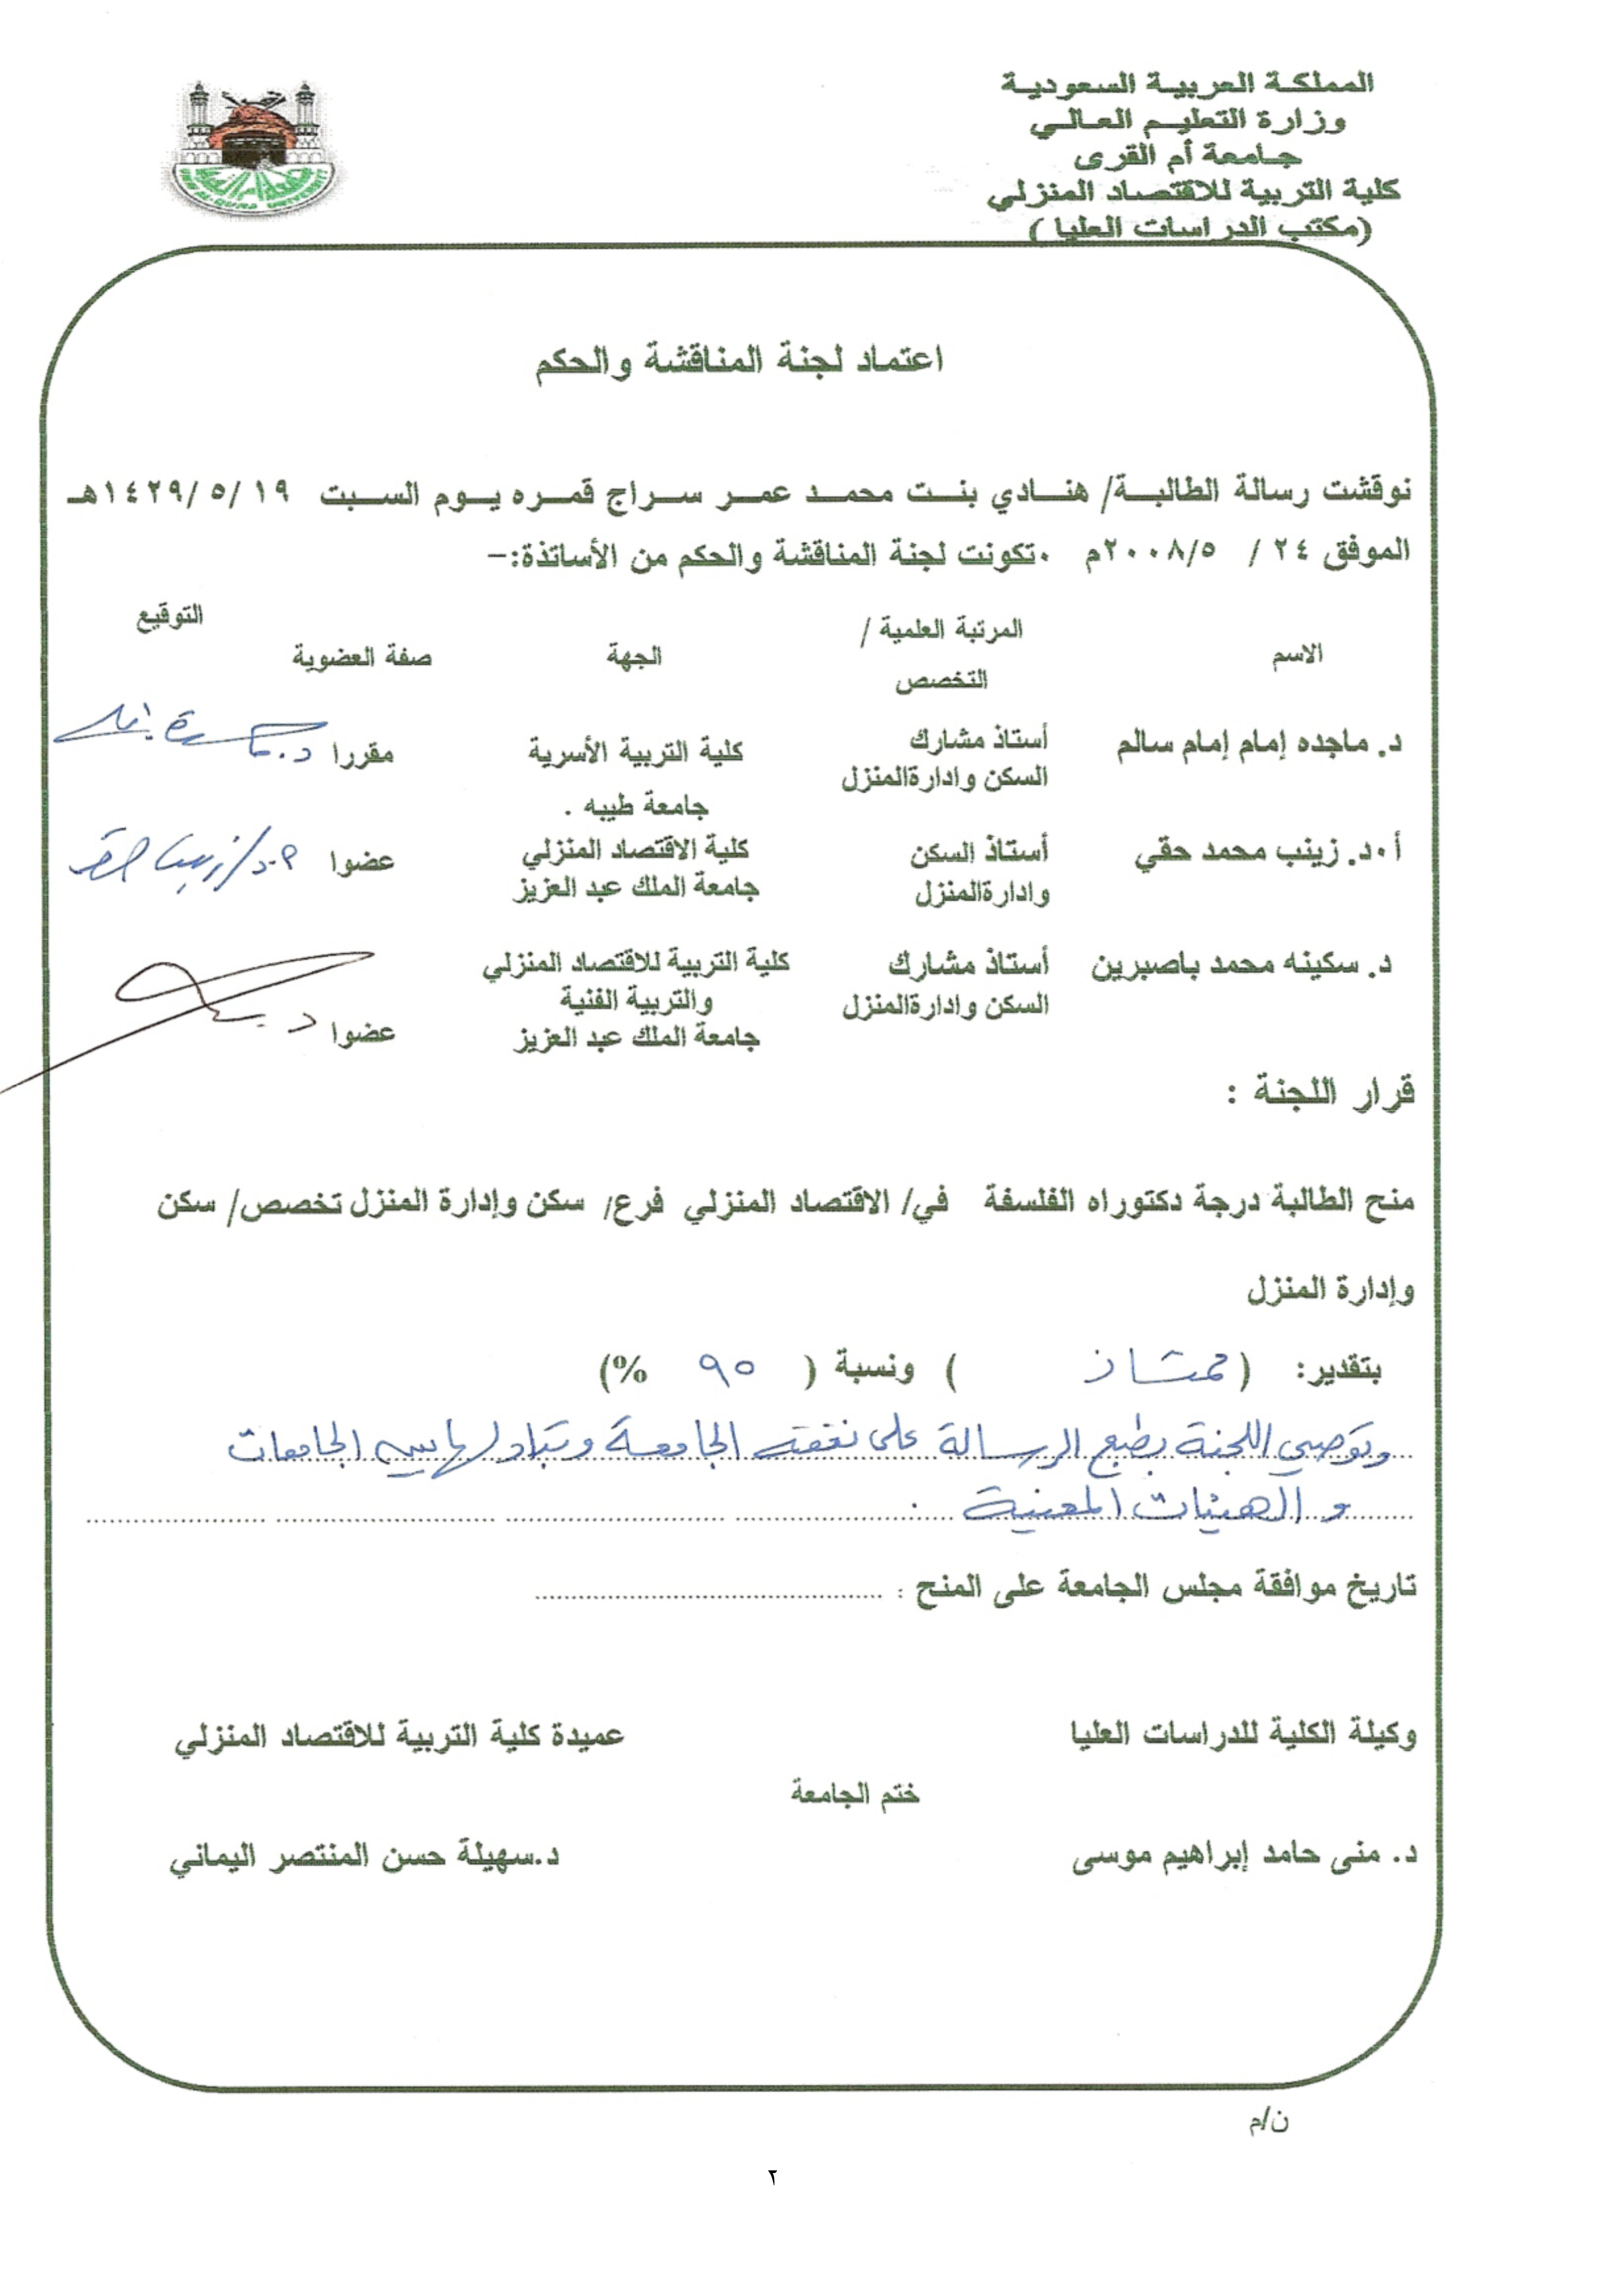 المملكة العربية السعودية
وزارة التعليم العالي
جامعة أم القرى
كلية التربية للاقتصاد المنزلي
(مكتب الدراسات العليا )
اعتماد لجنة المناقشة والحكم
نوقشت رسالة الطالبة/ هنادي بنت محمد عمر سراج قمره يوم السبت ١٩ /٥ /١٤٢٩هـ
الموفق ٢٤ / ٢٠٠٨/٥م ٠تكونت لجنة المناقشة والحكم من الأساتذة:-
الاسم المرتبة العلمية / التخصص الجهة صفة العضوية التوقيع
د. ماجده إمام إمام سالم أستاذ مشارك كلية التربية الأسرية مقررا
السكن وادارةالمنزل جامعة طيبه .
أ٠د. زينب محمد حقي أستاذ السكن كلية الاقتصاد المنزلي عضوا
وادارةالمنزل جامعة الملك عبد العزيز
د. سكينه محمد باصبرين أستاذ مشارك كلية التربية للاقتصاد المنزلي
السكن وادارةالمنزل والتربية الفنية
جامعة الملك عبد العزيز عضوا
قرار اللجنة :
منح الطالبة درجة دكتوراه الفلسفة في/ الاقتصاد المنزلي فرع/ سكن وإدارة المنزل تخصص/ سكن
وإدارة المنزل
بتقدير: (ممتاز ) ونسبة ( ٩٥ %)
وتوصي اللجنة بطبع الرسالة على نفقة الجامعة وتبادلها بين الجامعات
و الهيئات المعنية .
تاريخ موافقة مجلس الجامعة على المنح :
وكيلة الكلية للدراسات العليا عميدة كلية التربية للاقتصاد المنزلي
ختم الجامعة
د. منى حامد إبراهيم موسى د.سهيلة حسن المنتصر اليماني
ن/م
٢